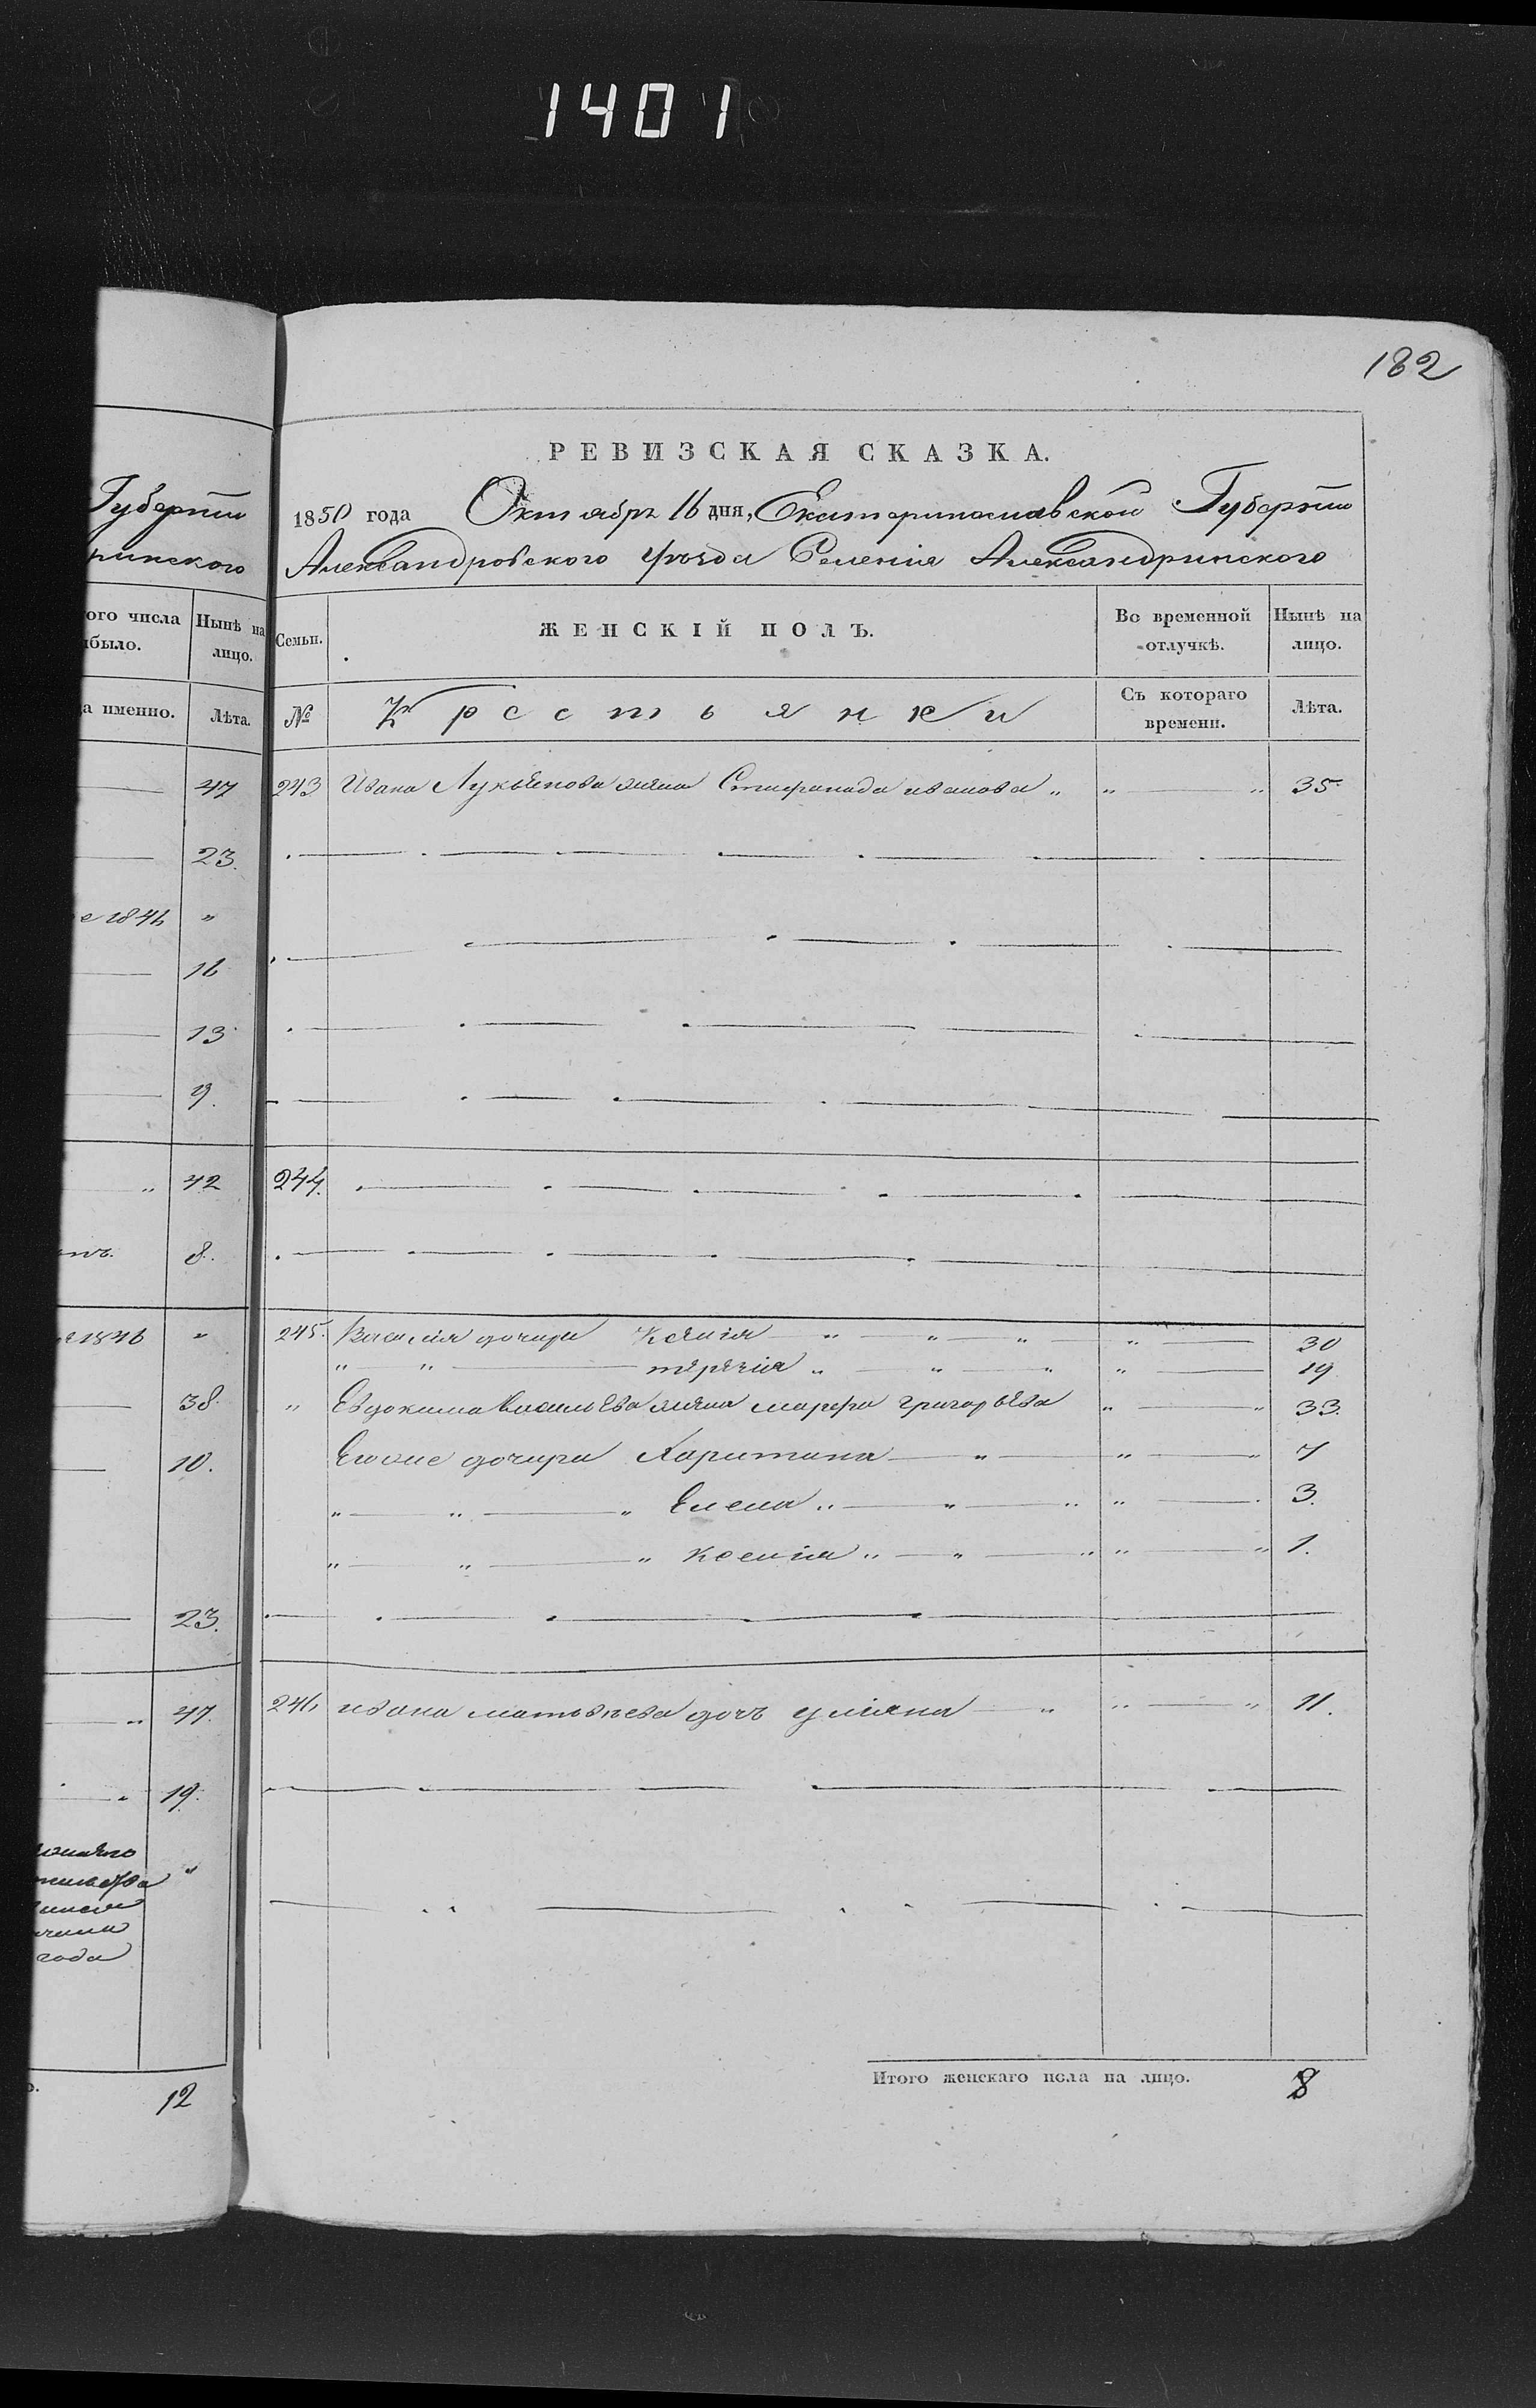 1401
182
Губерніи
ринского
ого числа
было.
Нынѣ на
лицо.
а именно.
Лѣта.
47
23.
е 1846 "
16
13
9.
" 42
8.
1846 "
38.
10.
23.
" 47.
" 19.
"
года
12
РЕВИЗСКАЯ СКАЗКА.
1850 года Октября 16 дня, Екатеринославской Губерніи
Александровского уѣзда Селенія Александринского
Семьи.
ЖЕНСКІЙ ПОЛЪ.
Во временной
отлучкѣ.
Нынѣ на
лицо.
№
Крестьянки
Съ котораго
времени.
Лѣта.
243 Ивана Лукьянова жена Степанида иванова " " " 35
244.
245. Василія дочери Ксенія " " " " 30
" " " " " " 19
" Евдокима Васильева жена марфа григорьева " " 33.
Евоие дочери Харитина " " " 7
" " " Елена " " " " " 3.
" " " ксенія " " " " " 1.
246 ивана матвѣева дочь уліяна " " " 11.
Итого женскаго пола на лицо. 8